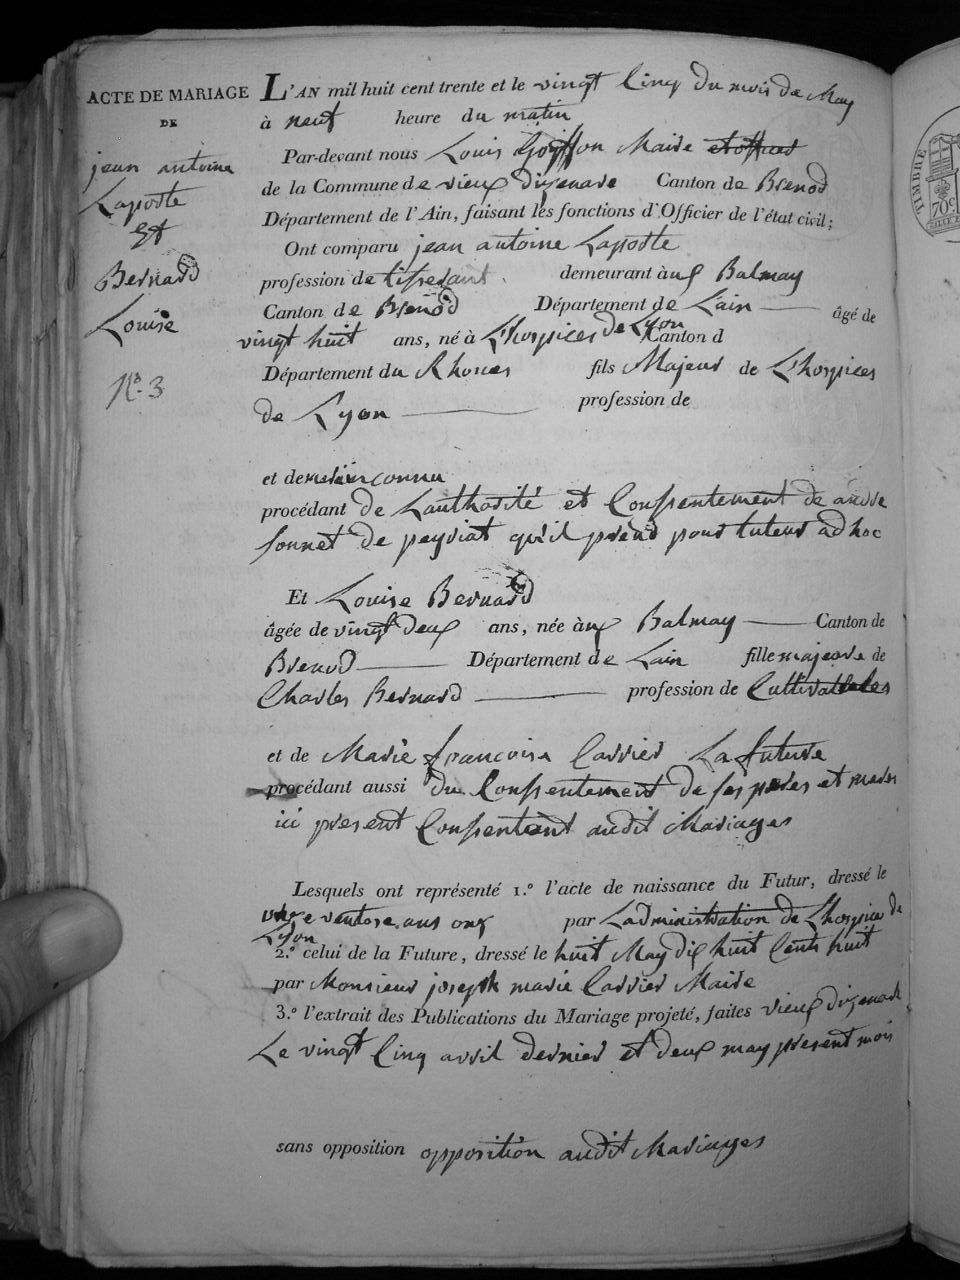 ACTE DE MARIAGE
DE
jean antoine
Laposte
Et
Bernard
Louise
N.º 3
L'AN mil huit cent trente et le vingt Cinq Du mois de May
à neuf heure du matin
Par-devant nous Louis Goiffon Maire
de la Commune de vieux dizenave Canton de Brenod
Département de l'Ain, faisant les fonctions d'Officier de l'état civil;
Ont comparu jean antoine Laposte
profession de tisserant demeurant aux Balmay
Canton de Brenod Département de L'ain âgé de
vingt huit ans, né à L'hospices de Lyon Canton d
Département du Rhones fils Majeur de L'hospices
de Lyon profession de
et de mère inconnu
procédant de Lauthorité et Consentement de
sonnet de peyriat qu'il prend pour tuteur ad hoc
Et Louise Bernard
âgée de vingt deux ans, née aux Balmay Canton de
Brenod Département de Lain fille majeure de
Charles Bernard profession de
et de Marie françoise Carrier La future
procédant aussi du Consentement de ses pères et mères
ici present Consentent audit Mariages
Lesquels ont représenté 1.º l'acte de naissance du Futur, dressé le
ventose ans onze par Ladministration de L'hospice de
Lyon
2.º celui de la Future, dressé le huit May dix huit Cents huit
par Monsieur joseph marie Carrier Maire
3.º l'extrait des Publications du Mariage projeté, faites vieux dizenave
Le vingt Cinq avril dernier et deux may present mois
sans opposition opposition audit Mariages
TIMBRE
70c.